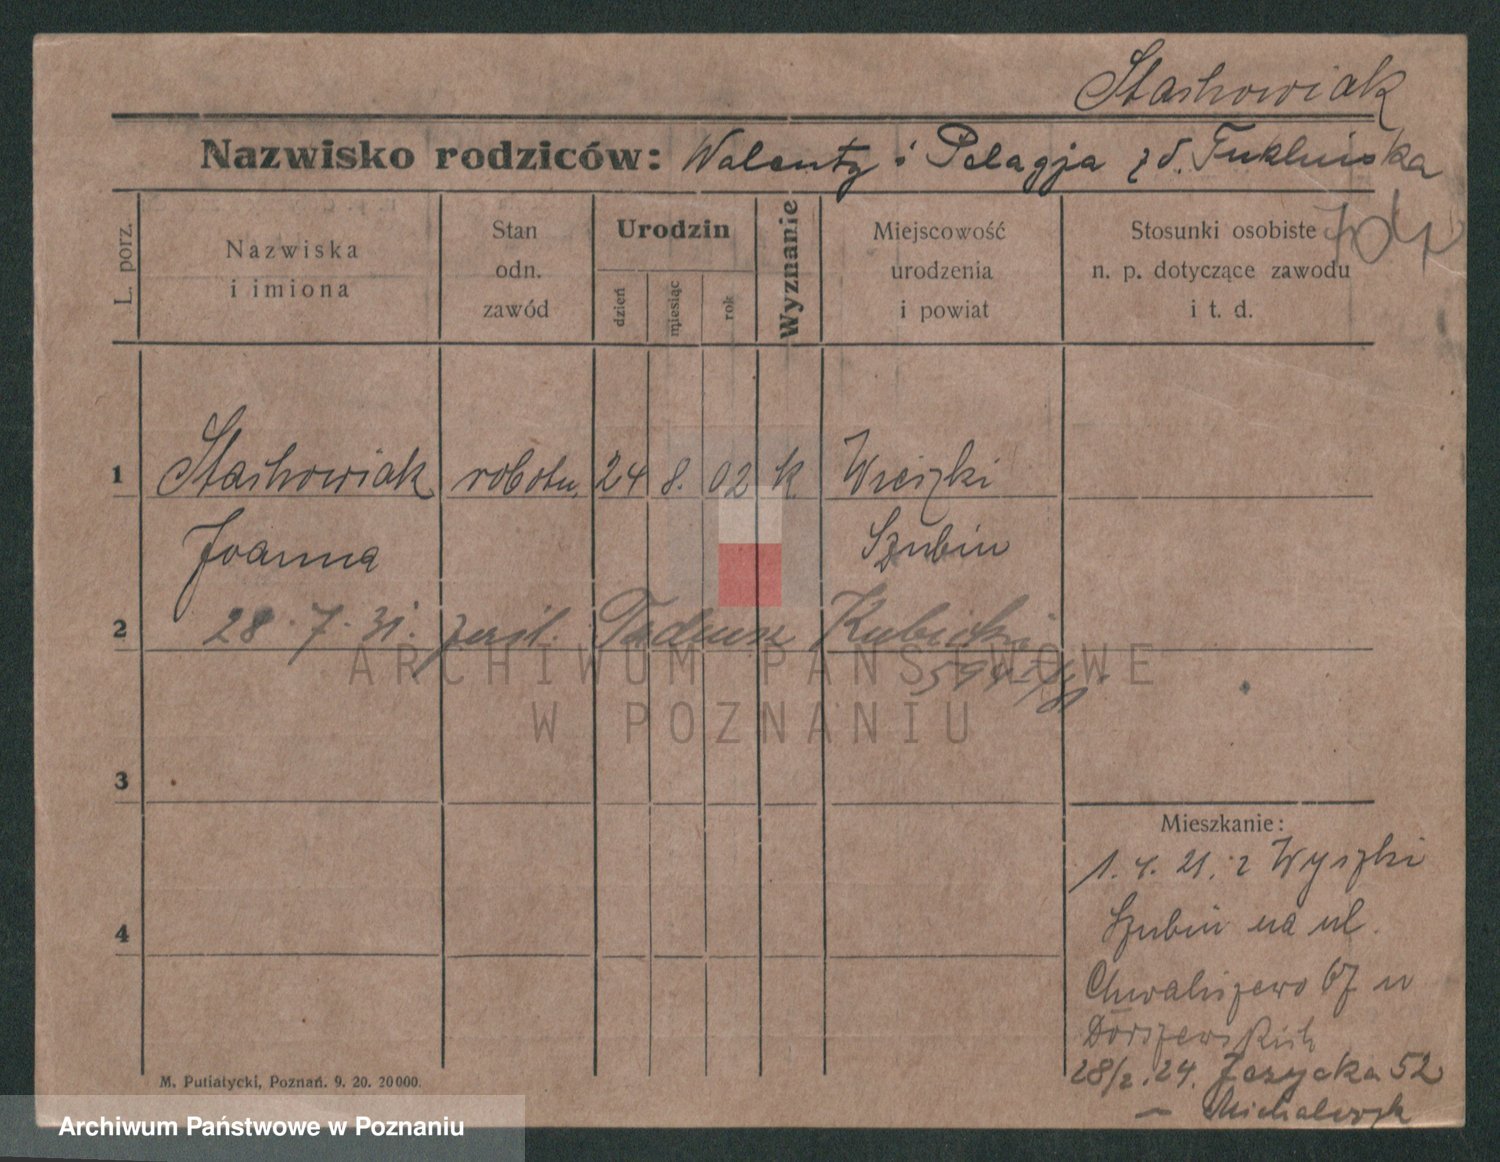 Stachowiak
Nazwisko rodziców: Walenty i Pelagja z d.
L. porz.
Nazwiska
i imiona
Stan
odn.
zawód
Urodzin
dzień
miesiąc
rok
Wyznanie
Miejscowość
urodzenia
i powiat
Stosunki osobiste
n. p. dotyczące zawodu
i t. d.
1 Stachowiak robotn. 24 8. 02 k Wieszki
Joanna Szubin
2 28. 7. 31. zaśl. Tadeusz Kubicki
3
4
Mieszkanie:
1. 4. 21. z Wyszki
Szubin na ul.
Chwaliszewo 67 u
28/2. 24. Jeżycka 52
M. Putiatycki, Poznań. 9. 20. 20000.
ARCHIWUM PAŃSTWOWE
W POZNANIU
Archiwum Państwowe w Poznaniu